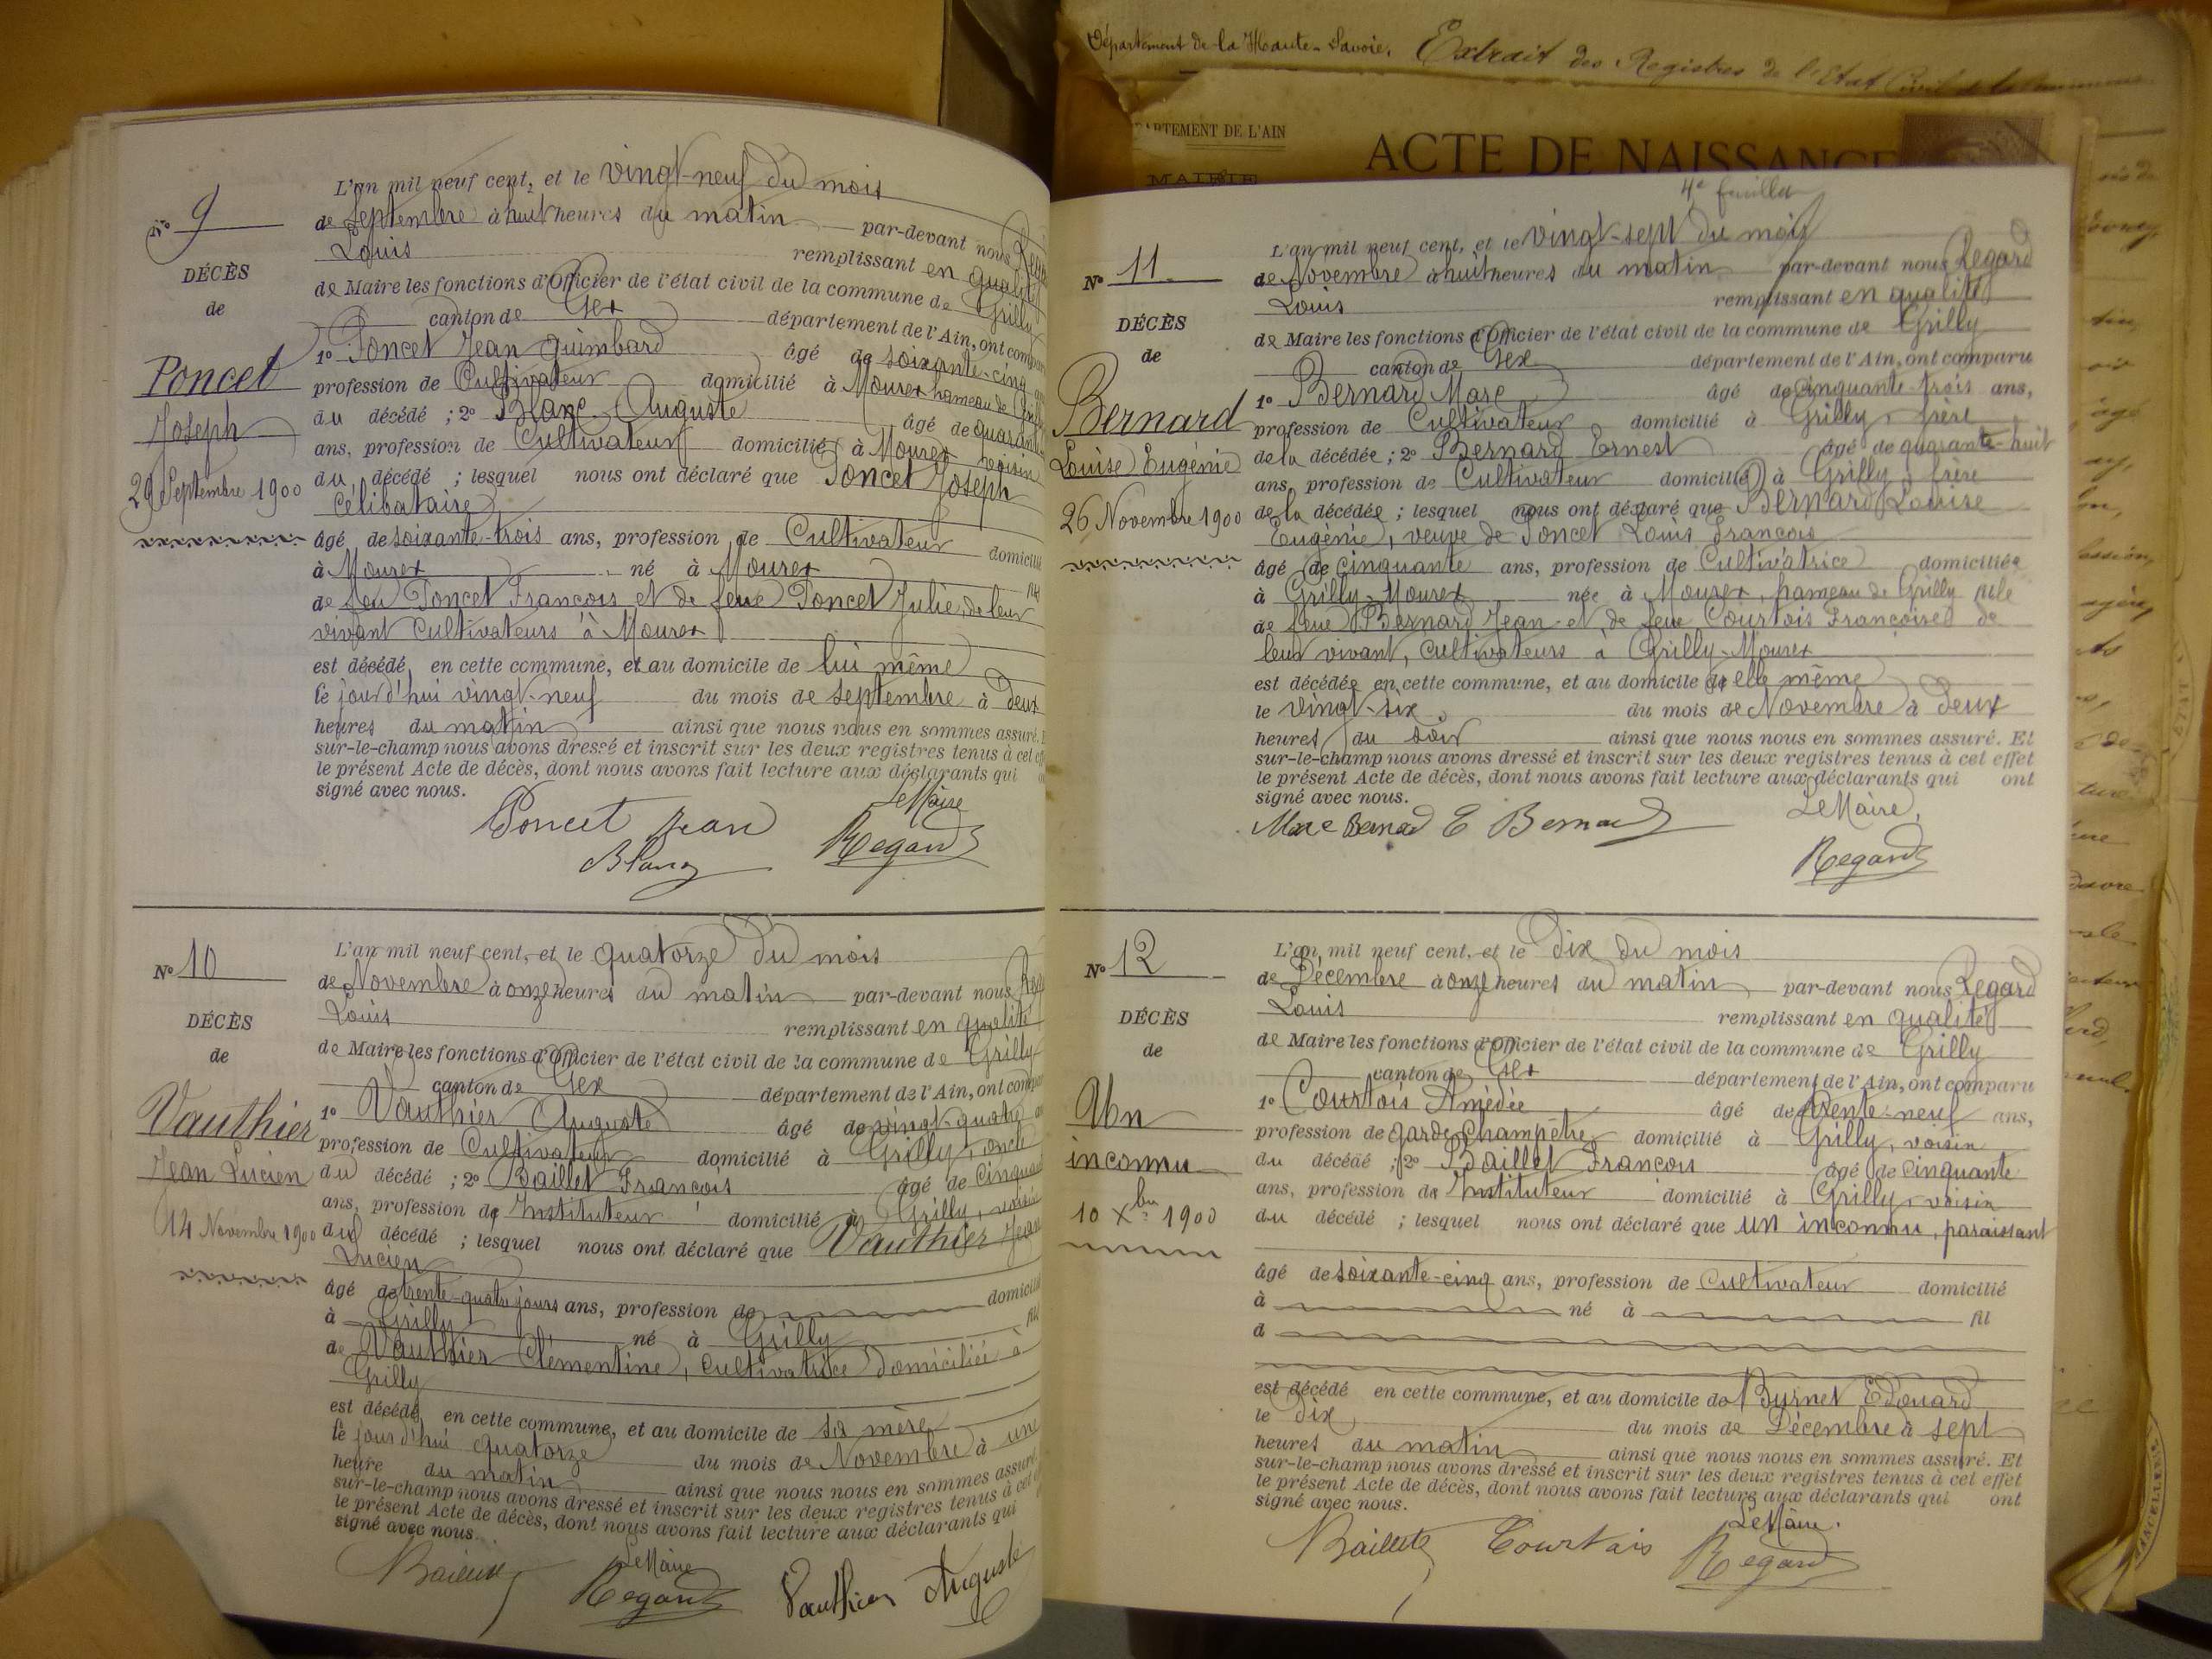 Département de la Haute-Savoie. Extrait des Registres de l'Etat Civil de la
PARTEMENT DE L'AIN
MAIRIE
ACTE DE NAISSANCE
N° 9
DÉCÈS
de
Poncet
Joseph
29 Septembre 1900
L'an mil neuf cent, et le vingt-neuf du mois
de Septembre à huit heures du matin par-devant nous
Louis remplissant en qualité
de Maire les fonctions d'Officier de l'état civil de la commune de Grilly
canton de Gex département de l'Ain, ont
1° Poncet Jean Guimbard âgé de soixante-cinq
profession de Cultivateur domicilié à Mourex hameau de
du décédé ; 2° Blanc Auguste âgé de
ans, profession de Cultivateur domicilié à Mourex voisin
du décédé ; lesquel nous ont déclaré que Poncet Joseph
Célibataire
âgé de soixante-trois ans, profession de Cultivateur
à Mourex né à Mourex
de feu Poncet François et de feue Poncet Julie, de leur
vivant cultivateurs à Mourex
est décédé en cette commune, et au domicile de lui même
le jourd'hui vingt-neuf du mois de septembre à deux
heures du matin ainsi que nous nous en sommes assuré.
sur-le-champ nous avons dressé et inscrit sur les deux registres tenus à cet
le présent Acte de décès, dont nous avons fait lecture aux déclarants qui
signé avec nous.
Le Maire
Poncet Jean
Blanc Regard
N° 10
DÉCÈS
de
Vauthier
Jean Lucien
14 Novembre 1900
L'an mil neuf cent, et le quatorze du mois
de Novembre à onze heures du matin par-devant nous
Louis remplissant en qualité
de Maire les fonctions d'Officier de l'état civil de la commune de Grilly
canton de Gex département de l'Ain, ont
1° Vauthier Auguste âgé de vingt-quatre
profession de Cultivateur domicilié à Grilly, oncle
du décédé ; 2° Baillet François âgé de
ans, profession de Instituteur domicilié à Grilly, voisin
du décédé ; lesquel nous ont déclaré que Vauthier Jean
Lucien
âgé de trente-quatre jours ans, profession de
à Grilly né à Grilly
de Vauthier Clémentine, cultivatrice domiciliée à
Grilly
est décédé en cette commune, et au domicile de sa mère
le jourd'hui quatorze du mois de Novembre à une
heure du matin ainsi que nous nous en sommes assuré.
sur-le-champ nous avons dressé et inscrit sur les deux registres tenus à cet
le présent Acte de décès, dont nous avons fait lecture aux déclarants qui
signé avec nous.
Le Maire
Regard Vauthier Auguste
4e feuillet
N° 11
DÉCÈS
de
Bernard
Louise Eugénie
26 Novembre 1900
L'an mil neuf cent, et le vingt-sept du mois
de Novembre à huit heures du matin par-devant nous Regard
Louis remplissant en qualité
de Maire les fonctions d'Officier de l'état civil de la commune de Grilly
canton de Gex département de l'Ain, ont comparu
1° Bernard Marc âgé de cinquante-trois ans,
profession de Cultivateur domicilié à Grilly, frère
de la décédée ; 2° Bernard Ernest âgé de quarante-huit
ans, profession de Cultivateur domicilié à Grilly, frère
de la décédée ; lesquel nous ont déclaré que Bernard Louise
Eugénie, veuve de Poncet Louis François
âgé de cinquante ans, profession de Cultivatrice domiciliée
à Grilly-Mourex née à Mourex, hameau de Grilly fille
de feue Bernard Jean et de feue Courtois Françoise de
leur vivant, cultivateurs à Grilly-Mourex
est décédée en cette commune, et au domicile de elle même
le vingt-six du mois de Novembre à deux
heures du soir ainsi que nous nous en sommes assuré. Et
sur-le-champ nous avons dressé et inscrit sur les deux registres tenus à cet effet
le présent Acte de décès, dont nous avons fait lecture aux déclarants qui ont
signé avec nous.
Le Maire,
Marc Bernard E Bernard
Regard
N° 12
DÉCÈS
de
Un
inconnu
10 Xbre 1900
L'an mil neuf cent, et le dix du mois
de Décembre à onze heures du matin par-devant nous Regard
Louis remplissant en qualité
de Maire les fonctions d'Officier de l'état civil de la commune de Grilly
canton de Gex département de l'Ain, ont comparu
1° Courtois Amédée âgé de trente-neuf ans,
profession de garde champetre domicilié à Grilly, voisin
du décédé ; 2° Baillet François âgé de cinquante
ans, profession de Instituteur domicilié à Grilly, voisin
du décédé ; lesquel nous ont déclaré que un inconnu, paraissant
âgé de soixante-cinq ans, profession de Cultivateur domicilié
à né à fil
d
est décédé en cette commune, et au domicile de Burnet Edouard
le dix du mois de Décembre à sept
heures du matin ainsi que nous nous en sommes assuré. Et
sur-le-champ nous avons dressé et inscrit sur les deux registres tenus à cet effet
le présent Acte de décès, dont nous avons fait lecture aux déclarants qui ont
signé avec nous.
Le Maire.
Baillet Courtois Regard